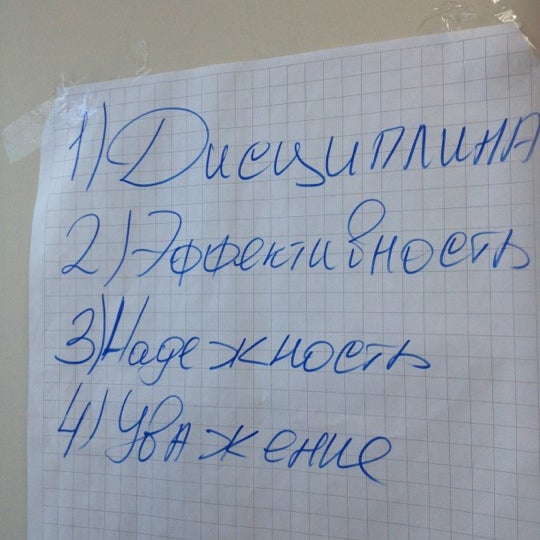 1) Дисциплина
2) Эффективность
3) Надежность
4) Уважение